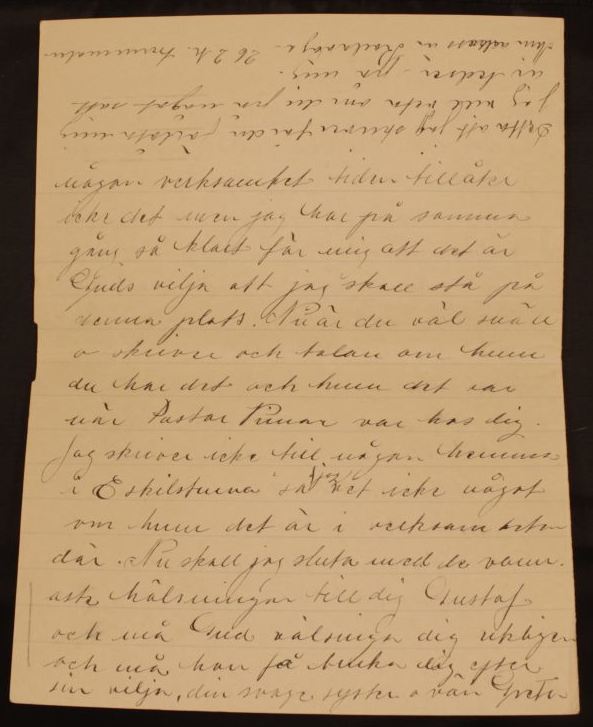 någon verksamhet tiden tillåter
icke det men jag har på samma
gång så klart för mig att det är
Guds vilja att jag skall stå på
denna plats. Nu är du väl snäll
o skriver och talar om huru
du har det och huru det var
när Pastor var hos dig.
Jag skriver icke till någon hemma
i Eskilstuna så jag vet icke något
om huru det är i verksamheten
där. Nu skall jag sluta med de varm-
aste hälsningar till dig Gustaf
och må Gud välsigna dig rikligen
och må han få bruka dig efter
sin vilja, din svage syster o vän
Detta att jag skriver får du förlåta mig
Jag vill veta om du på något sätt
är ledsen på mig.
Min adress är 26 2 h.